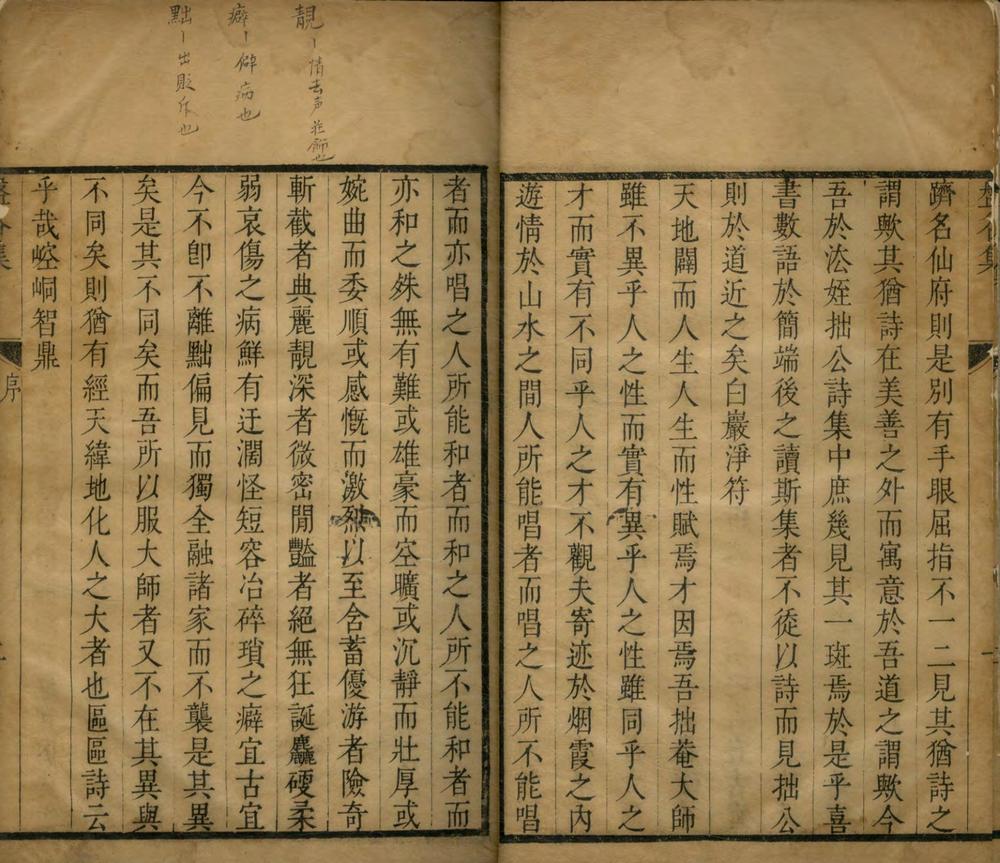 躋名仙府則是別有手眼屈指不一二見其猶詩之
謂歟其猶詩在美善之外而寓意於吾道之謂歟今
吾於法姪拙公詩集中庶幾見其一斑焉於是乎喜
書數語於簡端後之讀斯集者不從以詩而見拙公
則於道近之矣白巖淨符
天地闢而人生人生而性賦焉才因焉吾拙菴大師
雖不異乎人之性而實有異乎人之性雖同乎人之
才而實有不同乎人之才不觀夫寄迹於烟霞之內
遊情於山水之間人所能唱者而唱之人所不能唱
靚一情去声莊飾也
癖一僻病也
黜一出貶斥也
者而亦唱之人所能和者而和之人所不能和者而
亦和之殊無有難或雄豪而空曠或沉靜而壯厚或
婉曲而委順或感慨而激烈以至含蓄優游者險奇
斬截者典麗靚深者微密閒豔者絕無狂誕麤硬柔
弱哀傷之病鮮有迂濶怪短容冶碎瑣之癖宜古宜
今不卽不離黜偏見而獨全融諸家而不襲是其異
矣是其不同矣而吾所以服大師者又不在其異與
不同矣則猶有經天緯地化人之大者也區區詩云
乎哉崆峒智鼎
序